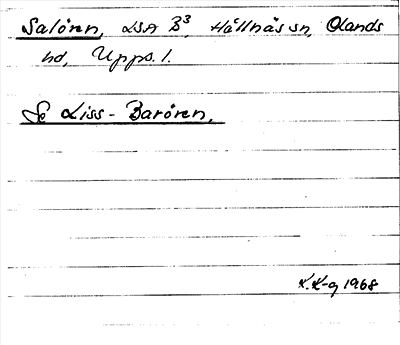 Salören, LSA B³, Hållnäs sn, Olands
hd, Upps. l.
Se Liss-Barören.
K.K-g 1968